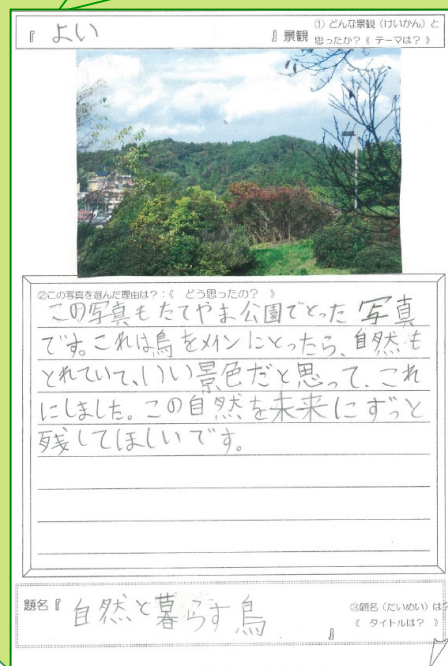 『 よい 』景観 ① どんな景観（けいかん）と
思ったか？《 テーマは？ 》
②この写真を選んだ理由は？：《 どう思ったの？ 》
この写真もたてやま公園でとった写真
です。これは鳥をメインにとったら、自然も
とれていて、いい景色だと思って、これ
にしました。この自然を未来にずっと
残してほしいです。
題名『 自然と暮らす鳥 』 ③題名（だいめい）は？
《 タイトルは？ 》